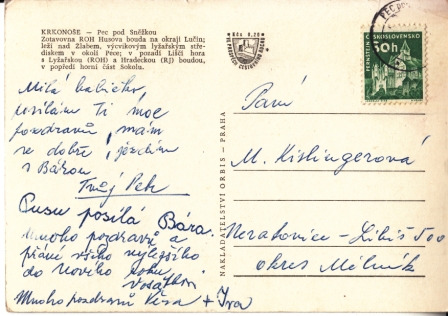 KRKONOŠE — Pec pod Sněžkou
Zotavovna ROH Husova bouda na okraji Lučin;
leží nad Žlabem, výcvikovým lyžařským stře-
diskem v okolí Pece; v pozadí Liščí hora
s Lyžařskou (ROH) a Hradeckou (RJ) boudou,
v popředí horní část Sokolu.
Kčs 0,20
Milá babičko,
posílám Ti moc
pozdravů, mám
se dobře, jezdím
s Bárou
Tvůj Petr
Pusu posílá Bára.
Mnoho pozdravů a
přání všeho nejlepšího
do nového roku
Mnoho pozdravů Věra + Iva
NAKLADATELSTVÍ ORBIS - PRAHA
PERNŠTEJN ČESKOSLOVENSKO
30h
Paní
M. Kislingerová
Neratovice - Libiš 500
okres Mělník